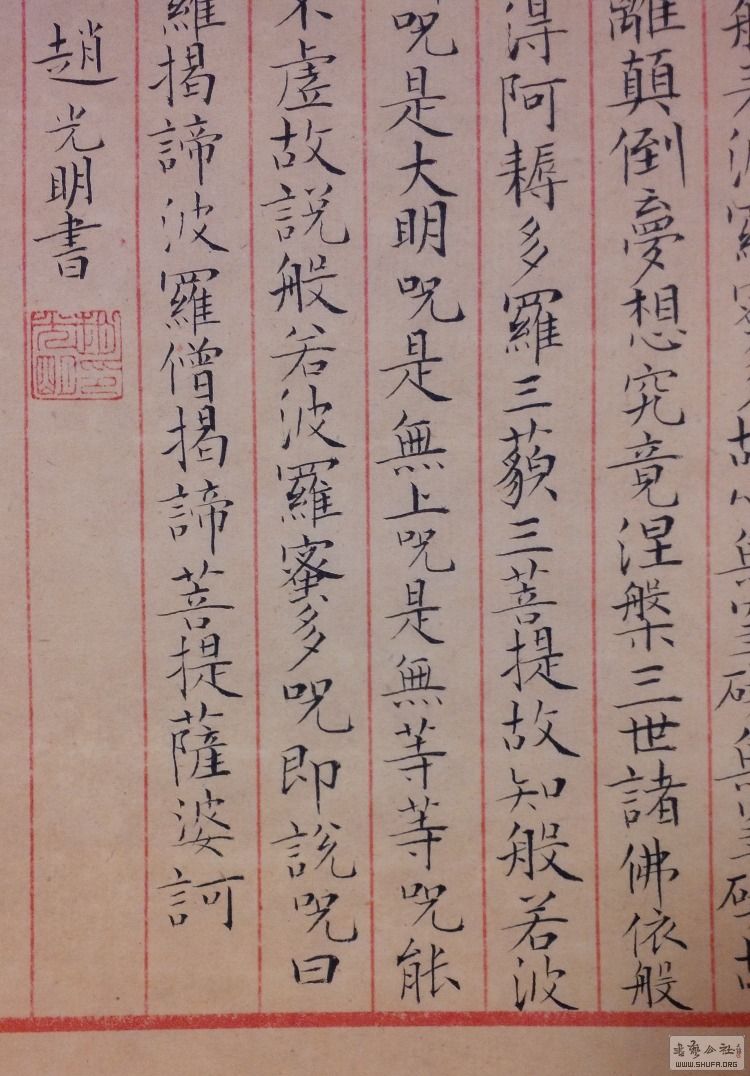 離顛倒夢想究竟涅槃三世諸佛依般
得阿耨多羅三藐三菩提故知般若波
呪是大明呪是無上呪是無等等呪能
不虛故說般若波羅蜜多呪即說呪曰
羅揭諦波羅僧揭諦菩提薩婆訶
趙光明書
WWW.SHUFA.ORG